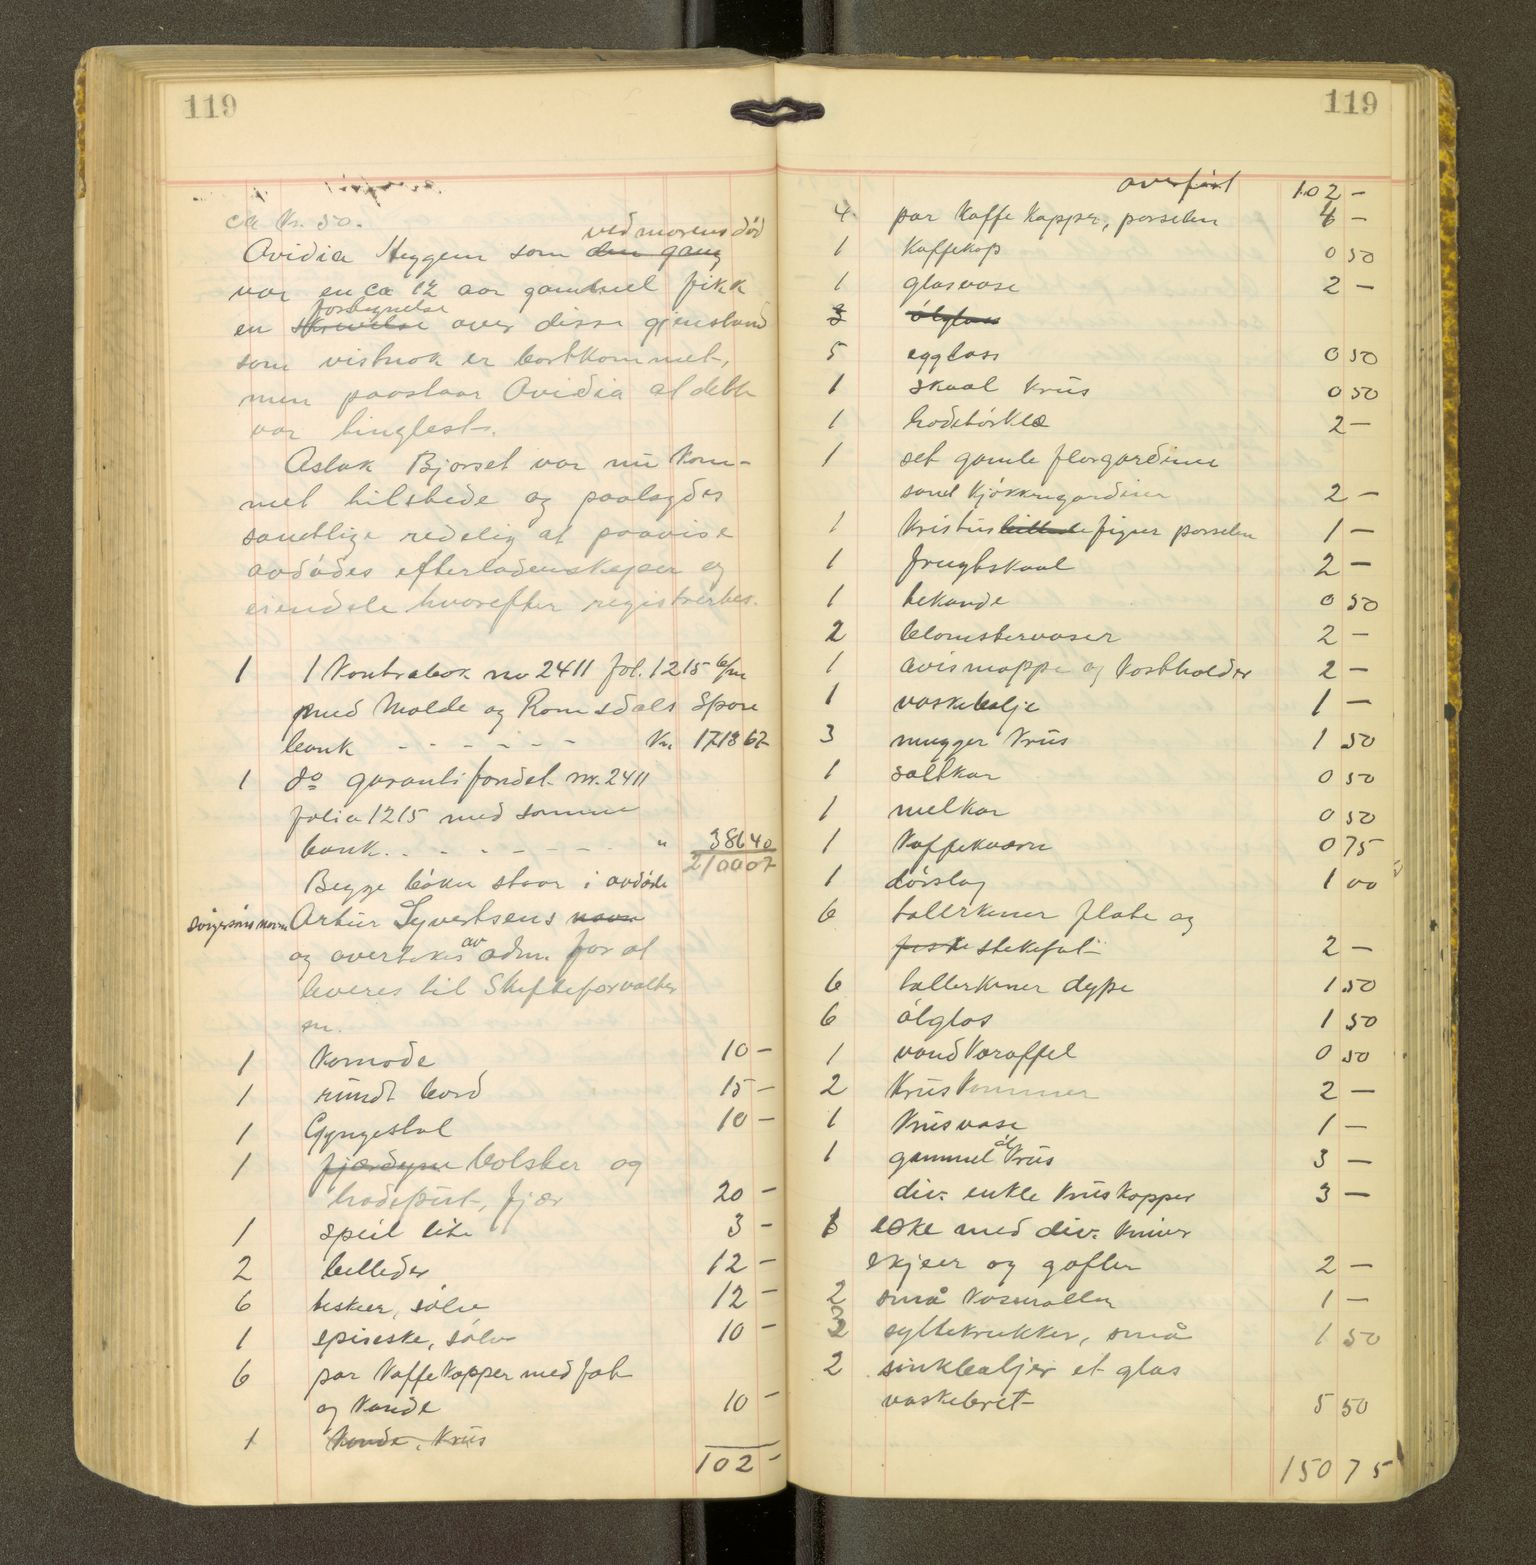 119
ca kr. 50.
ved morens död
Ovidia Heggem som den gang
var en ca 12 aar gammel fikk
forteg­nelse
en skrivelse over disse gjenstand
som vistnok er bortkommet,
men paastaar Ovidia at dette
var tinglest.
Aslak Bjorset var nu kom-
met tilstede og paalagdes
samtlige redelig at paavise
avdödes efterladenskaper og
eiendele hvorefter registrertes.
1 1 Kontrabok no 2411 fol. 1215
med Molde og Romsdals Spare
bank - - - - - - Kr. 1713 67
1 do garantifondet nr. 2411
folio 1215 med samme
bank. - - - - - - " 386 40
2100 07
Begge böker staar i avdöde
svigersöns navn Artur Syvertsens navn
og overtokes av adm. for at
leveres til Skifteforvalter
en.
1 Komode 10 -
1 rundt bord 15 -
1 Gyngestol 10 -
1 fjærdyne bolster og
hodeput, fjær 20 -
1 speil lite 3 -
2 billeder 12 -
6 teskeer, sölv 12 -
1 spiseske, sölv 10 -
6 par Kaffekopper med fat
og Kande 10 -
1 Kande, Krus
102 -
119
overfört 102 -
4 par Kaffe Kopper, porselen 4 -
1 Kaffekop 0 50
1 glasvase 2 -
3 ölglass
5 egglass 0 50
1 skaal Krus 0 50
1 hodetörkle 2 -
1 set gamle florgardiner
samt kjökkengardiner 2 -
1 Kristus billede figur porselen 1 -
1 frugtskaal 2 -
1 tekande 0 50
2 blomstervaser 2 -
1 avismappe og Kostholder 2 -
1 vaskebalje 1 -
3 mugger Krus 1 50
1 saltkar 0 50
1 melkar 0 50
1 Kaffekværn 0 75
1 dörslag 1 00
6 tallerkener flate og
stekefat 2 -
6 tallerkener dype 1 50
6 ölglas 1 50
1 vandkaraffel 0 50
2 Krus Kommer 2 -
1 Krusvase 1 -
1 gammel öl Krus 3 -
div. enkle Kruskopper 3 -
1 eske med div. Kniver
skjeer og gafler 2 -
2 små Kaseroller 1 -
3 syltekrukker, små 1 50
2 sinkbaljer et glas
vaskebret 5 50
150 75